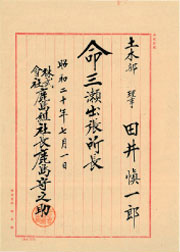 土木部 理事 田井愼一郎
命三瀬出張所長
昭和二十年七月一日
株式會社鹿島組社長鹿島守之助